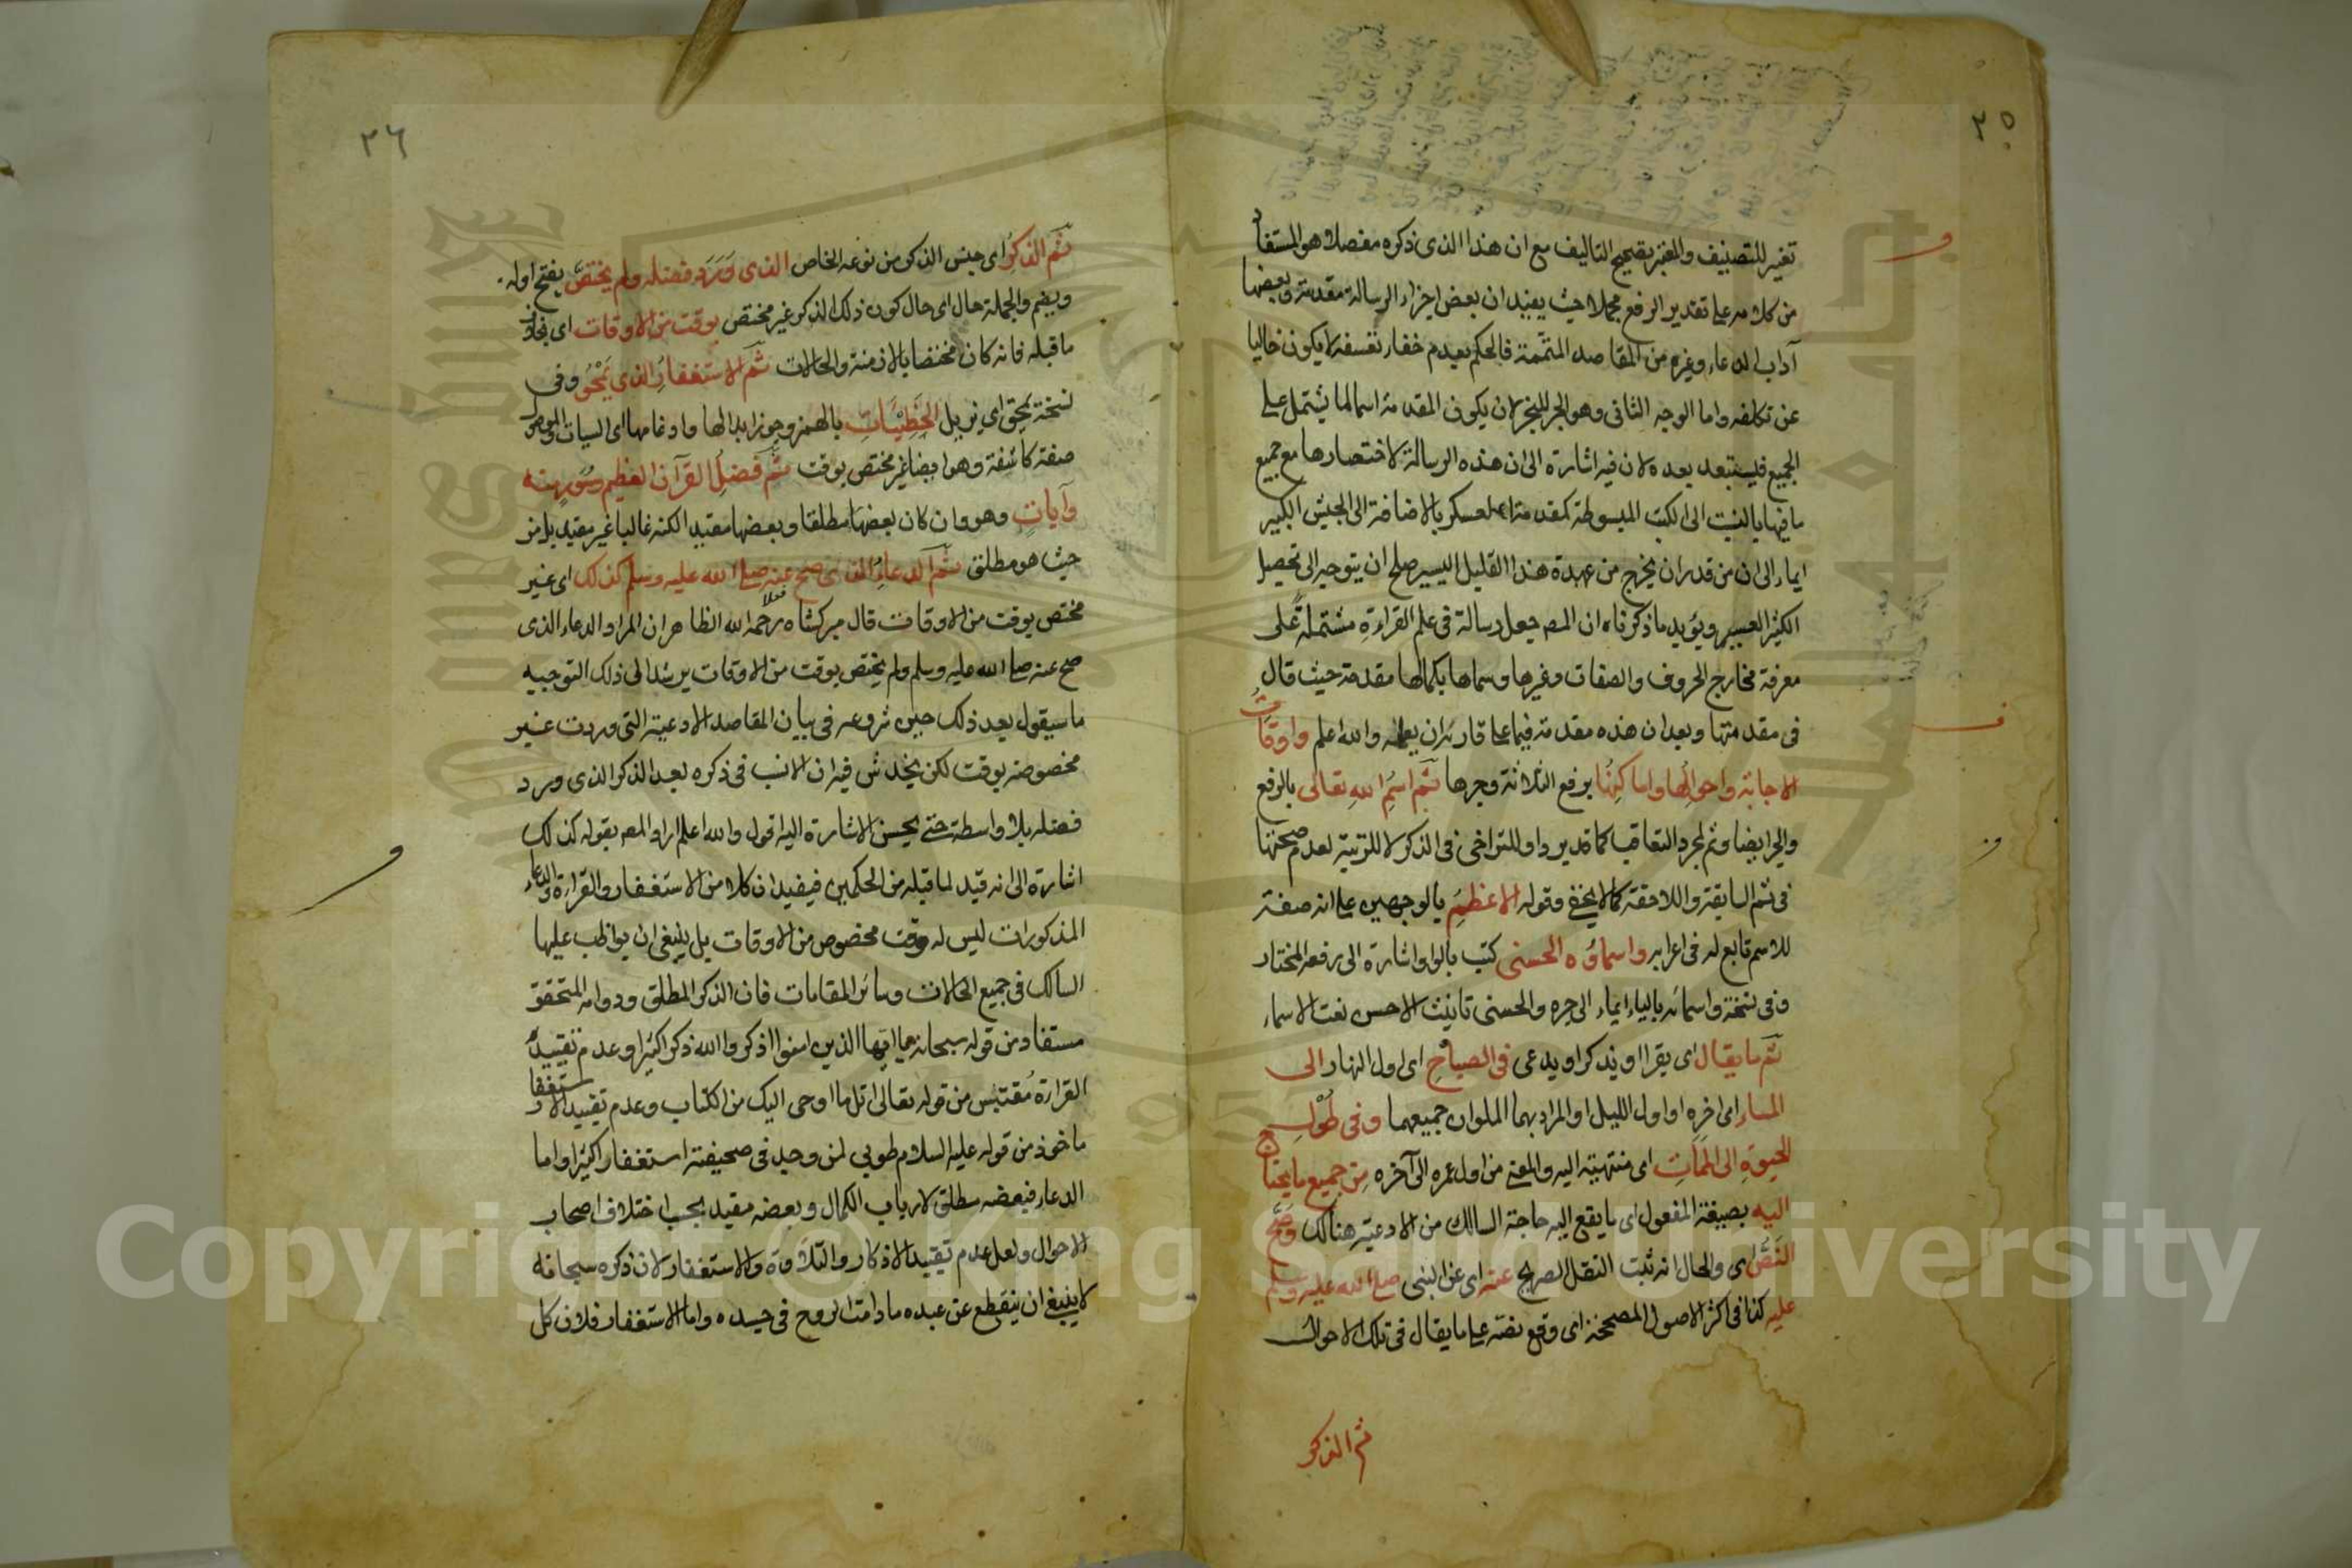 ٣٥
تغير للتصنيف والمغير بصحيح التاليف مع ان هذا الذى ذكره مفصلا هو المستفاد
من كلامه على تقدير الرفع مجملا حيث يفيد ان بعض اجزاء الرسالة مقدمة وبعضها
آداب الدعاء وغيره من المقاصد المتممة فالحكم بعدم خفاء تعسفه لا يكون خاليا
عن تكلفه واما الوجه الثانى وهو الجر للبخر لان يكون المقدمة اسما لما يشتمل على
الجميع فليستبعد بعده لان فيه اشارة الى ان هذه الرسالة لاختصارها مع جميع
ما فيها بالنسبت الى الكتب المبسوطة كمقدمة العسكر بالاضافة الى الجيش الكبير
ايماء الى ان من قدر ان يخرج من عهدة هذا القليل اليسير صلح ان يتوجه الى تحصيل
الكثير العسير ويؤيد ما ذكرناه ان المص جعل رسالة فى علم القراءة مشتملة على
معرفة مخارج الحروف والصفات وغيرها وسماها بكمالها مقدمة حيث قال
فى مقدمتها وبعد ان هذه مقدمة فيما على قارئه ان يعلمه والله اعلم واوقات
الاجابة واحوالها واماكنها برفع الثلاثة وجرها ثم اسم الله تعالى بالرفع
والجر ايضا وثم لمجرد التعاقب كما تدير داو للتراخى فى الذكر لا للترتيب لعدم صحتها
فى ثم السابقة واللاحقة كما لا يخفى وقوله الاعظم بالوجهين على انه صفة
للاسم تابع له فى اعرابه واسماؤه الحسنى كتب بالواو اشارة الى رفعه المختار
وفى نسخة واسمائه بالياء ايماء الى جره والحسنى تانيث الاحسن نعت الاسماء
ثم ما يقال اى يقرا او يذكر او يدعى فى الصباح اى اول النهار الى
المساء اى اخره او اول الليل او المراد بهما الملوان جميعهما وفى طول
الحيوة الى الممات اى منتهية اليه والمعنى من اول عمره الى آخره من جميع ما يحتاج
اليه بصيغة المفعول اى ما يقع اليه حاجة السالك من الادعية هنالك وصح
النص اى والحال انه ثبت النقل الصريح عنه اى عن النبى صلى الله عليه وسلم
عليه كذا فى اكثر الاصول المصححة اى وقع نصه على ما يقال فى تلك الاحوال
ثم الذكر
٣٦
ثم الذكر اى جنس الذكر من نوعه الخاص الذى ورد فضله ولم يختص بفتح اوله
ويضم والجملة حال اى حال كون ذلك الذكر غير مختص بوقت من الاوقات اى بخلاف
ما قبله فانه كان مختصا بالازمنة والحالات ثم الاستغفار الذى يمحو وفى
نسخة يمحق اى يزيل الخطيئات بالهمز وجوز ابدالها وادغامها اى السيئات والموصول
صفة كاشفة وهو ايضا غير مختص بوقت ثم فضل القرآن العظيم وسور منه
وآيات وهو وان كان بعضها مطلقا وبعضها مقيدا لكنه غالبا غير مقيد بل من
حيث هو مطلق ثم الدعاء الذى صح عنه صلى الله عليه وسلم كذلك اى غير
مختص بوقت من الاوقات قال ميركشاه رحمه الله الظاهر ان المراد الدعاء الذى
صح عنه صلى الله عليه وسلم ولم يختص بوقت من الاوقات يرشد الى ذلك التوجيه
ما سيقول بعد ذلك حين شروعه فى بيان المقاصد الادعية التى وردت غير
مخصوصة بوقت لكن يخدش فيه ان الانسب فى ذكره بعد الذكر الذى ورد
فضله بلا واسطة حتى يحسن الاشارة اليه اقول والله اعلم اراد المص بقوله كذلك
اشارة الى انه قيد لما قبله من الحكمين فيفيد ان كلا من الاستغفار والقراءة والدعاء
المذكورات ليس له وقت مخصوص من الاوقات بل ينبغى ان يواظب عليها
السالك فى جميع الحالات وسائر المقامات فان الذكر المطلق ودوامه المتحقق
مستفاد من قوله سبحانه يا ايها الذين امنوا اذكروا الله ذكرا كثيرا وعدم تقييد
القراءة مقتبس من قوله تعالى اتل ما اوحى اليك من الكتاب وعدم تقييد الاستغفار
ماخوذ من قوله عليه السلام طوبى لمن وجد فى صحيفته استغفارا كثيرا واما
الدعاء فبعضه مطلق لارباب الكمال وبعضه مقيد بحسب اختلاف اصحاب
الاحوال ولعل عدم تقييد الاذكار والتلاوة والاستغفار لان ذكره سبحانه
لا ينبغى ان ينقطع عن عبده ما دامت الروح فى جسده واما الاستغفار فلان كل
Copyright © King Saud University